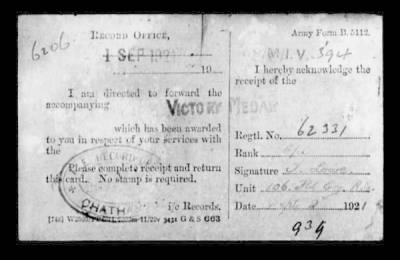 6206
RECORD OFFICE,
1 SEP 192
19
I am directed to forward the
accompanying
VICTORY MEDAL
which has been awarded
to you in respect of your services with
the
RECORD
Please complete receipt and return
this card. No stamp is required.
CHATH
i/c Records.
3434 G & S 663
Army Form B. 5112.
M.I.V. 394
I hereby acknowledge the
receipt of the
Regtl. No. 62331
Rank
Signature
Unit 106. Fld Coy. R.E.
Date 1921
939